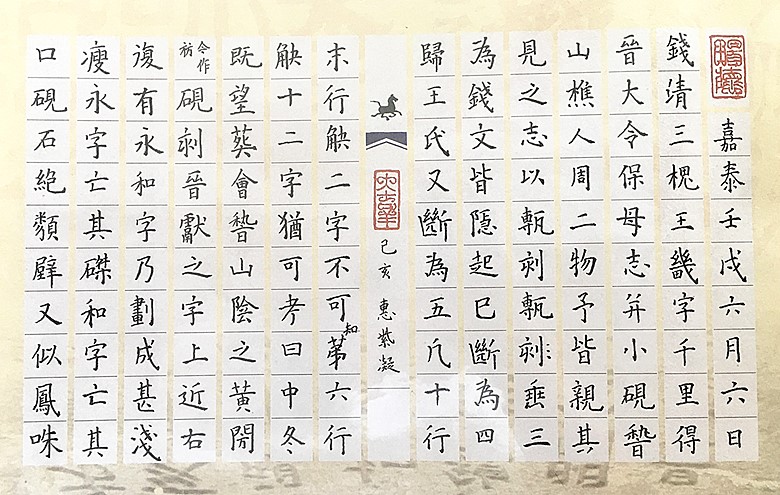 嘉泰壬戌六月六日
錢清三槐王畿字千里得
晉大令保母志并小硯嵆
山樵人周二物予皆親其
見之志以甎刻甎刻〻垂三
為錢文皆隱起已斷為四
歸王氏又斷為五凡十行
己亥 惠紫凝
末行缺二字不可知第六行
缺十二字猶可考曰中冬
既望葬會嵆山陰之黃閍
令作祊
硯刻晉獻之字上近右
復有永和字乃劃成甚淺
瘦永字亡其磔和字亡其
口硯石絶類壁又似鳳咮